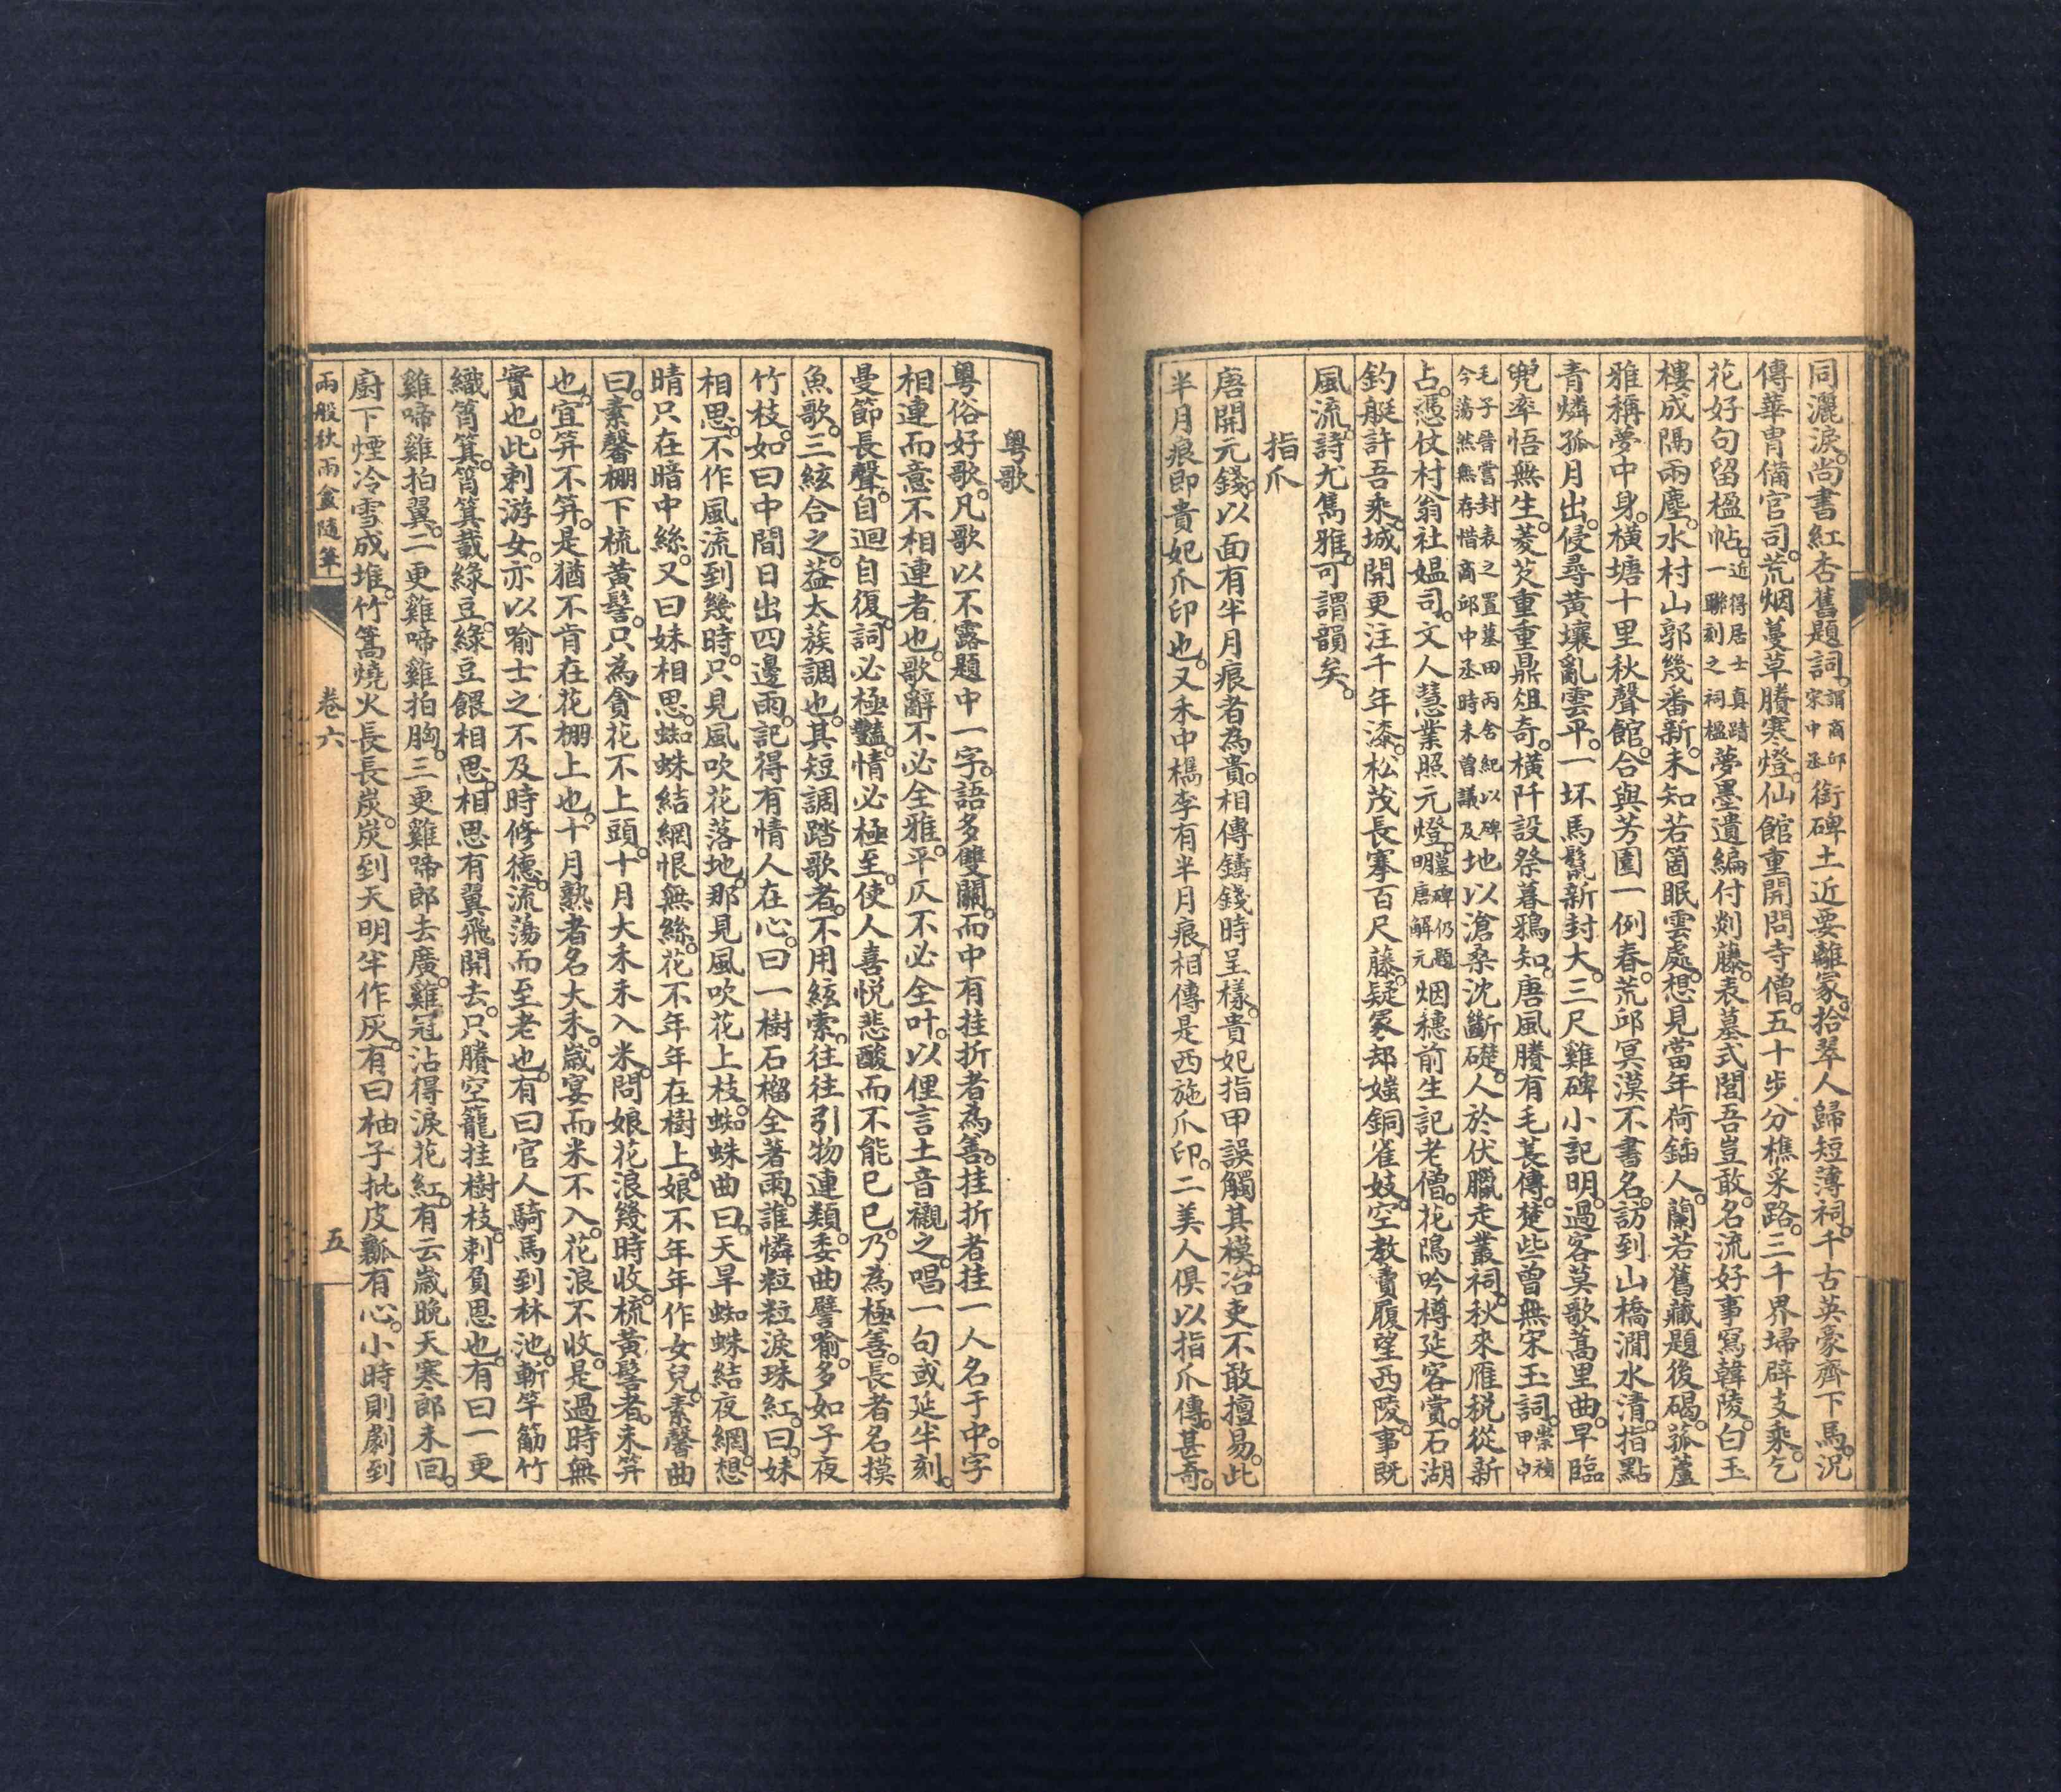 同灑淚。尚書紅杏舊題詞。謂商邱宋中丞銜碑土近要離冢。拾翠人歸短薄祠。千古英豪齊下馬。況
傳華胄備官司。荒烟蔓草賸寒燈。仙館重開問寺僧。五十步分樵采路。三千界埽辟支乘。乞
花好句留楹帖。近得居士真蹟一聯刻之祠楹夢墨遺編付剡藤。表墓式閭吾豈敢。名流好事寫韓陵。白玉
樓成隔兩塵。水村山郭幾番新。未知若箇眠雲處。想見當年荷鍤人。蘭若舊藏題後碣。菰蘆
雅稱夢中身。橫塘十里秋聲館。合與芳園一例春。荒邱冥漠不書名。訪到山橋澗水清。指點
青燐孤月出。侵尋黃壤亂雲平。一坏馬鬣新封大。三尺雞碑小記明。過客莫歌蒿里曲。早臨
兜率悟無生。菱芡重重鼎俎奇。橫阡設祭暮鴉知。唐風賸有毛萇傳。楚些曾無宋玉詞。崇禎甲申
毛子晉嘗封表之置墓田丙舍紀以碑今蕩然無存惜商邱中丞時未曾議及地以滄桑沈斷礎。人於伏臘走叢祠。秋來雁稅從新
占。憑仗村翁社媼司。文人慧業照元燈。墓碑仍題明唐解元烟穗前生記老僧。花隖吟樽延客賞。石湖
釣艇許吾乘。城開更注千年漆。松茂長搴百尺藤。疑冢却嗤銅雀妓。空教賣履望西陵。事既
風流。詩尤雋雅。可謂韻矣。
指爪
唐開元錢。以面有半月痕者為貴。相傳鑄錢時呈樣。貴妃指甲誤觸其模。冶吏不敢擅易。此
半月痕即貴妃爪印也。又禾中檇李有半月痕。相傳是西施爪印。二美人俱以指爪傳。甚奇。
粵歌
粵俗好歌。凡歌以不露題中一字。語多雙關。而中有挂折者為善。挂折者挂一人名于中。字
相連而意不相連者也。歌辭不必全雅。平仄不必全叶。以俚言土音襯之。唱一句或延半刻。
曼節長聲。自迴自復。詞必極豔。情必極至。使人喜悅悲酸而不能已已。乃為極善。長者名摸
魚歌。三絃合之。葢太蔟調也。其短調踏歌者。不用絃索。往往引物連類。委曲譬喻。多如子夜
竹枝。如曰中間日出四邊雨。記得有情人在心。曰一樹石榴全著雨。誰憐粒粒淚珠紅。曰妹
相思。不作風流到幾時。只見風吹花落地。那見風吹花上枝。蜘蛛曲曰。天旱蜘蛛結夜網。想
晴只在暗中絲。又曰妹相思。蜘蛛結網恨無絲。花不年年在樹上。娘不年年作女兒。素馨曲
曰。素馨棚下梳黃髻。只為貪花不上頭。十月大禾未入米。問娘花浪幾時收。梳黃髻者。未笄
也。宜笄不笄。是猶不肯在花棚上也。十月熟者名大禾。歲宴而米不入。花浪不收。是過時無
實也。此刺游女。亦以喻士之不及時修德。流蕩而至老也。有曰官人騎馬到林池。斬竿筋竹
織筲箕。筲箕載綠豆。綠豆餵相思。相思有翼飛開去。只賸空籠挂樹枝。刺負恩也。有曰一更
雞啼雞拍翼。二更雞啼雞拍胸。三更雞啼郎去廣。雞冠沾得淚花紅。有云歲晚天寒郎未回。
廚下煙冷雪成堆。竹篙燒火長長炭。炭到天明半作灰。有曰柚子批皮瓤有心。小時則劇到
兩般秋雨盦隨筆
卷六
五